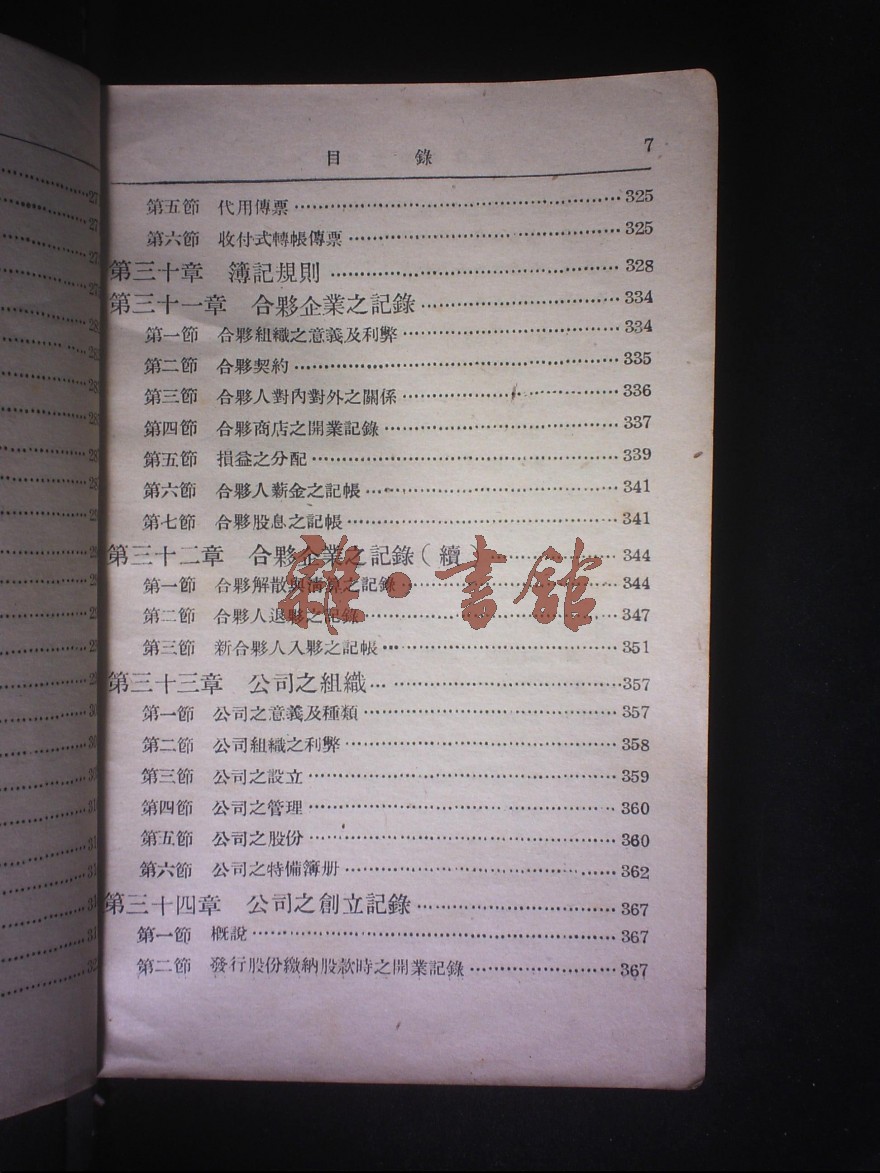 目 錄 7
第五節 代用傳票 325
第六節 收付式轉帳傳票 325
第三十章 簿記規則 328
第三十一章 合夥企業之記錄 334
第一節 合夥組織之意義及利弊 334
第二節 合夥契約 335
第三節 合夥人對內對外之關係 336
第四節 合夥商店之開業記錄 337
第五節 損益之分配 339
第六節 合夥人薪金之記帳 341
第七節 合夥股息之記帳 341
第三十二章 合夥企業之記錄（續） 344
第一節 合夥解散與清算之記錄 344
第二節 合夥人退夥之記錄 347
第三節 新合夥人入夥之記帳 351
第三十三章 公司之組織 357
第一節 公司之意義及種類 357
第二節 公司組織之利弊 358
第三節 公司之設立 359
第四節 公司之管理 360
第五節 公司之股份 360
第六節 公司之特備簿册 362
第三十四章 公司之創立記錄 367
第一節 概說 367
第二節 發行股份繳納股款時之開業記錄 367
雜·書館